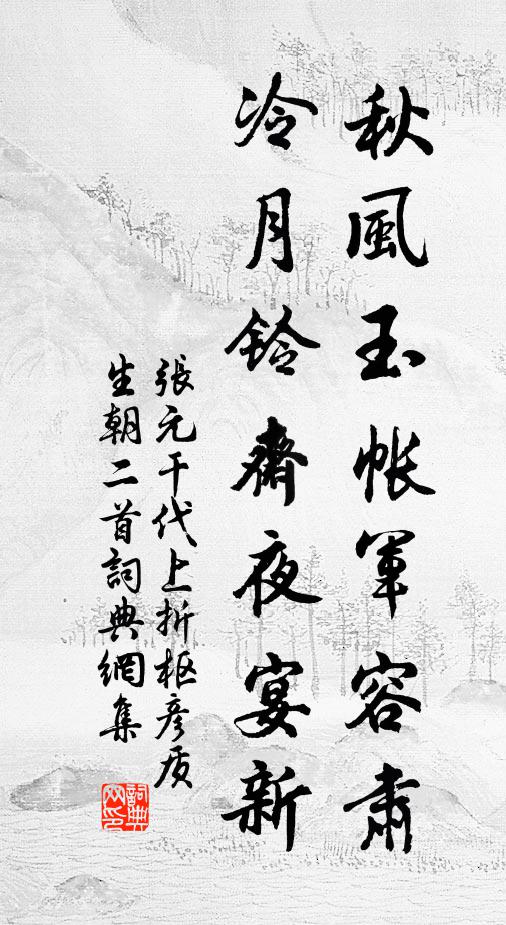 秋風玉帳軍容肅
冷月鈴齋夜宴新
張元干代上折枢彥质
生朝二首詞典網集
詞典
网印